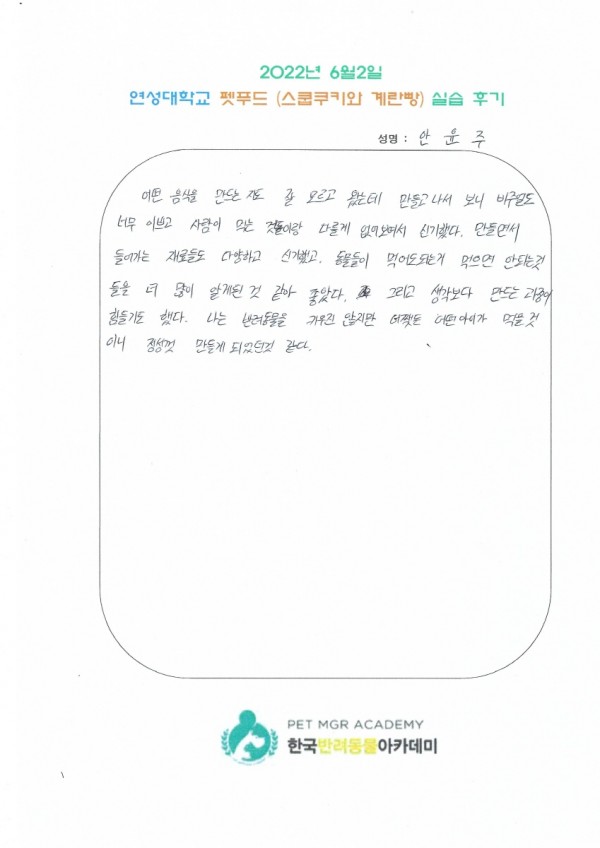 2022년 6월2일
연성대학교 펫푸드 (스쿱쿠키와 계란빵) 실습 후기
성명 : 안 윤 주
어떤 음식을 만드는 지도 잘 모르고 왔는데 만들고 나서 보니 비주얼도
너무 이쁘고 사람이 먹는 것들이랑 다를게 없어보여서 신기했다. 만들면서
들어가는 재료들도 다양하고 신기했고. 동물들이 먹어도되는거 먹으면 안되는것
들을 더 많이 알게된 것 같아 좋았다. 그리고 생각보다 만드는 과정이
힘들기도 했다. 나는 반려동물을 키우진 않지만 어쨋든 어떤아이가 먹을 것
이니 정성껏 만들게 되었던것 같다.
PET MGR ACADEMY
한국반려동물아카데미